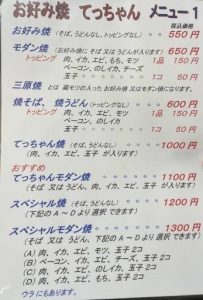 お好み焼 てっちゃん メニュー1
税込価格
お好み焼 (そば、うどんなし、トッピングなし) 550円
モダン焼 (お好み焼に そば 又は うどんが入ります) 650円
トッピング 肉、イカ、エビ、もち、モツ 1品 150円
ベーコン、のしイカ、チーズ
玉子 1コ 50円
三原焼 とは 鶏モツの入った お好み焼 又は モダン焼になります。
焼そば、焼うどん (トッピングなし) 600円
トッピング 肉、イカ、エビ、モツ 1品 150円
ベーコン、のしイカ
玉子 1コ 50円
てっちゃん焼 1000円
(肉、イカ、エビ、玉子 が入ります)
おすすめ
てっちゃんモダン焼 1100円
(そば 又は うどん、肉、イカ、エビ、玉子 が入ります)
スペシャル焼 1200円
(下記の A ～ D より選択 できます)
スペシャルモダン焼 1300円
(そば 又は うどん、下記の A ～ D より選択 できます)
(A) 肉、イカ、エビ、モツ、玉子 2コ
(B) 肉、イカ、エビ、チーズ、玉子 2コ
(C) 肉、イカ、エビ、のしイカ、玉子 2コ
(D) 肉、イカ、エビ、もち、玉子 2コ
ウラ にもあります。